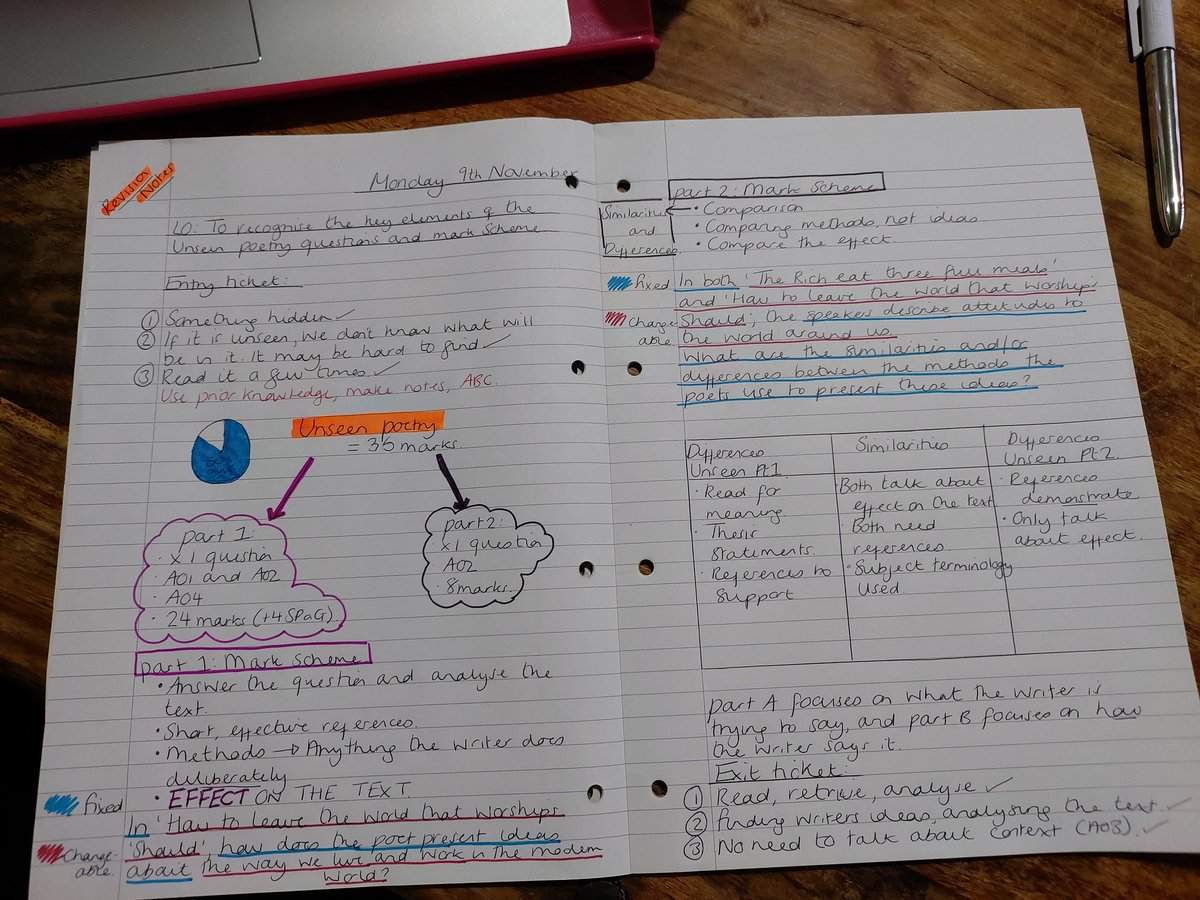 Revision
Notes
Monday 9th November
LO: To recognise the key elements of the
Unseen poetry questions and mark scheme
Entry ticket:
① Something hidden ✓
② If it is unseen, we don't know what will
be in it. It may be hard to find ✓
③ Read it a few times. ✓
Use prior knowledge, make notes, ABC.
Unseen poetry
= 36 marks.
part 1:
· x1 question
· A01 and A02
· A04
· 24 marks (+4 SPaG)
part 2:
x1 question
A02
· 8 marks.
part 1: Mark Scheme
· Answer the question and analyse the
text.
· Short, effective references.
· Methods → Anything the writer does
deliberately
· EFFECT ON THE TEXT
fixed
Change-
able.
In 'How to leave the world that worships
'Should' how does the poet present ideas
about the way we live and work in the modern
world?
part 2: Mark Scheme
Similarities
and
Differences
· Comparison
· Comparing methods, not ideas.
· Compare the effect.
fixed
Change-
able.
In both 'The Rich eat three full meals'
and 'How to leave the world that worships
Should', the speakers describe attitudes to
the world around us.
What are the similarities and/or
differences between the methods the
poets use to present these ideas?
Differences
Unseen Pt1
· Read for
meaning.
· Thesis
Statements.
· References to
Support
Similarities
Both talk about
effect on the text
· Both need
references.
· Subject terminology
used.
Differences
Unseen Pt2.
· References
demonstrate.
· Only talk
about effect.
part A focuses on what the writer is
trying to say, and part B focuses on how
the writer says it.
Exit ticket:
① Read, retrive, analyse ✓
② finding writers ideas, analysing the text. ✓
③ No need to talk about context (A03). ✓